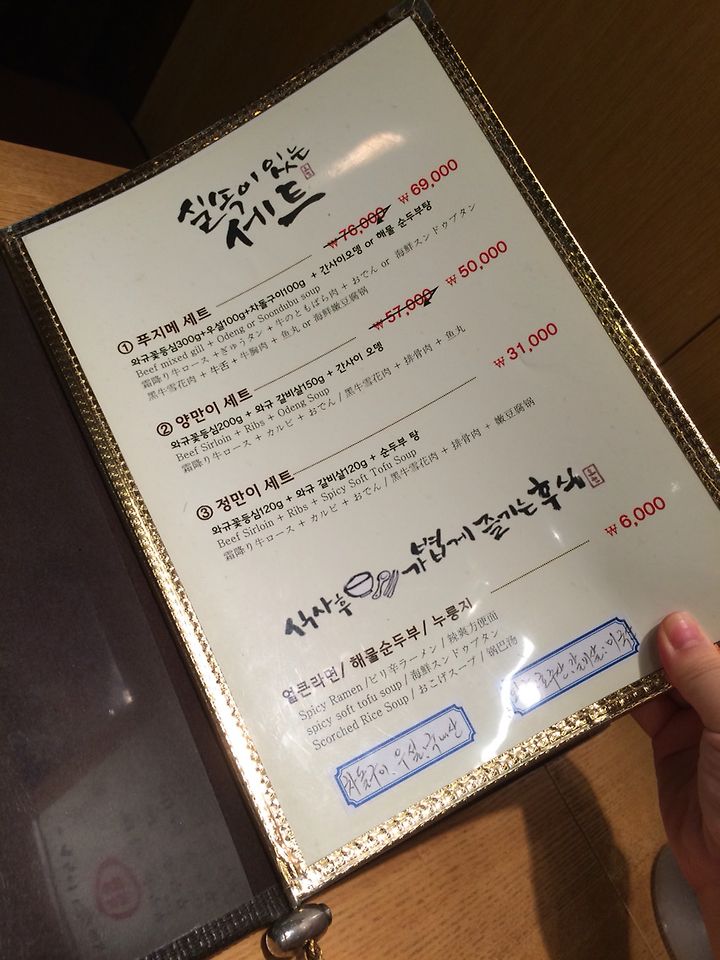 실속이 있는
세트
① 푸지메 세트 ₩ 76,000 ₩ 69,000
와규꽃등심300g+우설100g+차돌구이100g + 간사이오뎅 or 해물 순두부탕
Beef mixed gill + Odeng or Soondubu soup
霜降り牛ロース +ぎゅうタン + 牛のともばら肉 + おでん or 海鮮スンドゥブタン
黑牛雪花肉 + 牛舌 + 牛胸肉 + 鱼丸 or 海鲜嫩豆腐锅
② 양만이 세트 ₩ 57,000 ₩ 50,000
와규꽃등심200g + 와규 갈비살150g + 간사이 오뎅
Beef Sirloin + Ribs + Odeng Soup
霜降り牛ロース + カルビ + おでん / 黑牛雪花肉 + 排骨肉 + 鱼丸
③ 정만이 세트 ₩ 31,000
와규꽃등심120g + 와규 갈비살120g + 순두부 탕
Beef Sirloin + Ribs + Spicy Soft Tofu Soup
霜降り牛ロース + カルビ + おでん / 黑牛雪花肉 + 排骨肉 + 嫩豆腐锅
식사 후 가볍게 즐기는 후식
얼큰라면/ 해물순두부/ 누룽지 ₩ 6,000
Spicy Ramen /ピリ辛ラーメン / 辣爽方便面
spicy soft tofu soup / 海鮮スンドゥブタン
Scorched Rice Soup / おこげスープ / 锅巴汤
차돌구이, 우설:국내산
호주산, 갈비살:미국산